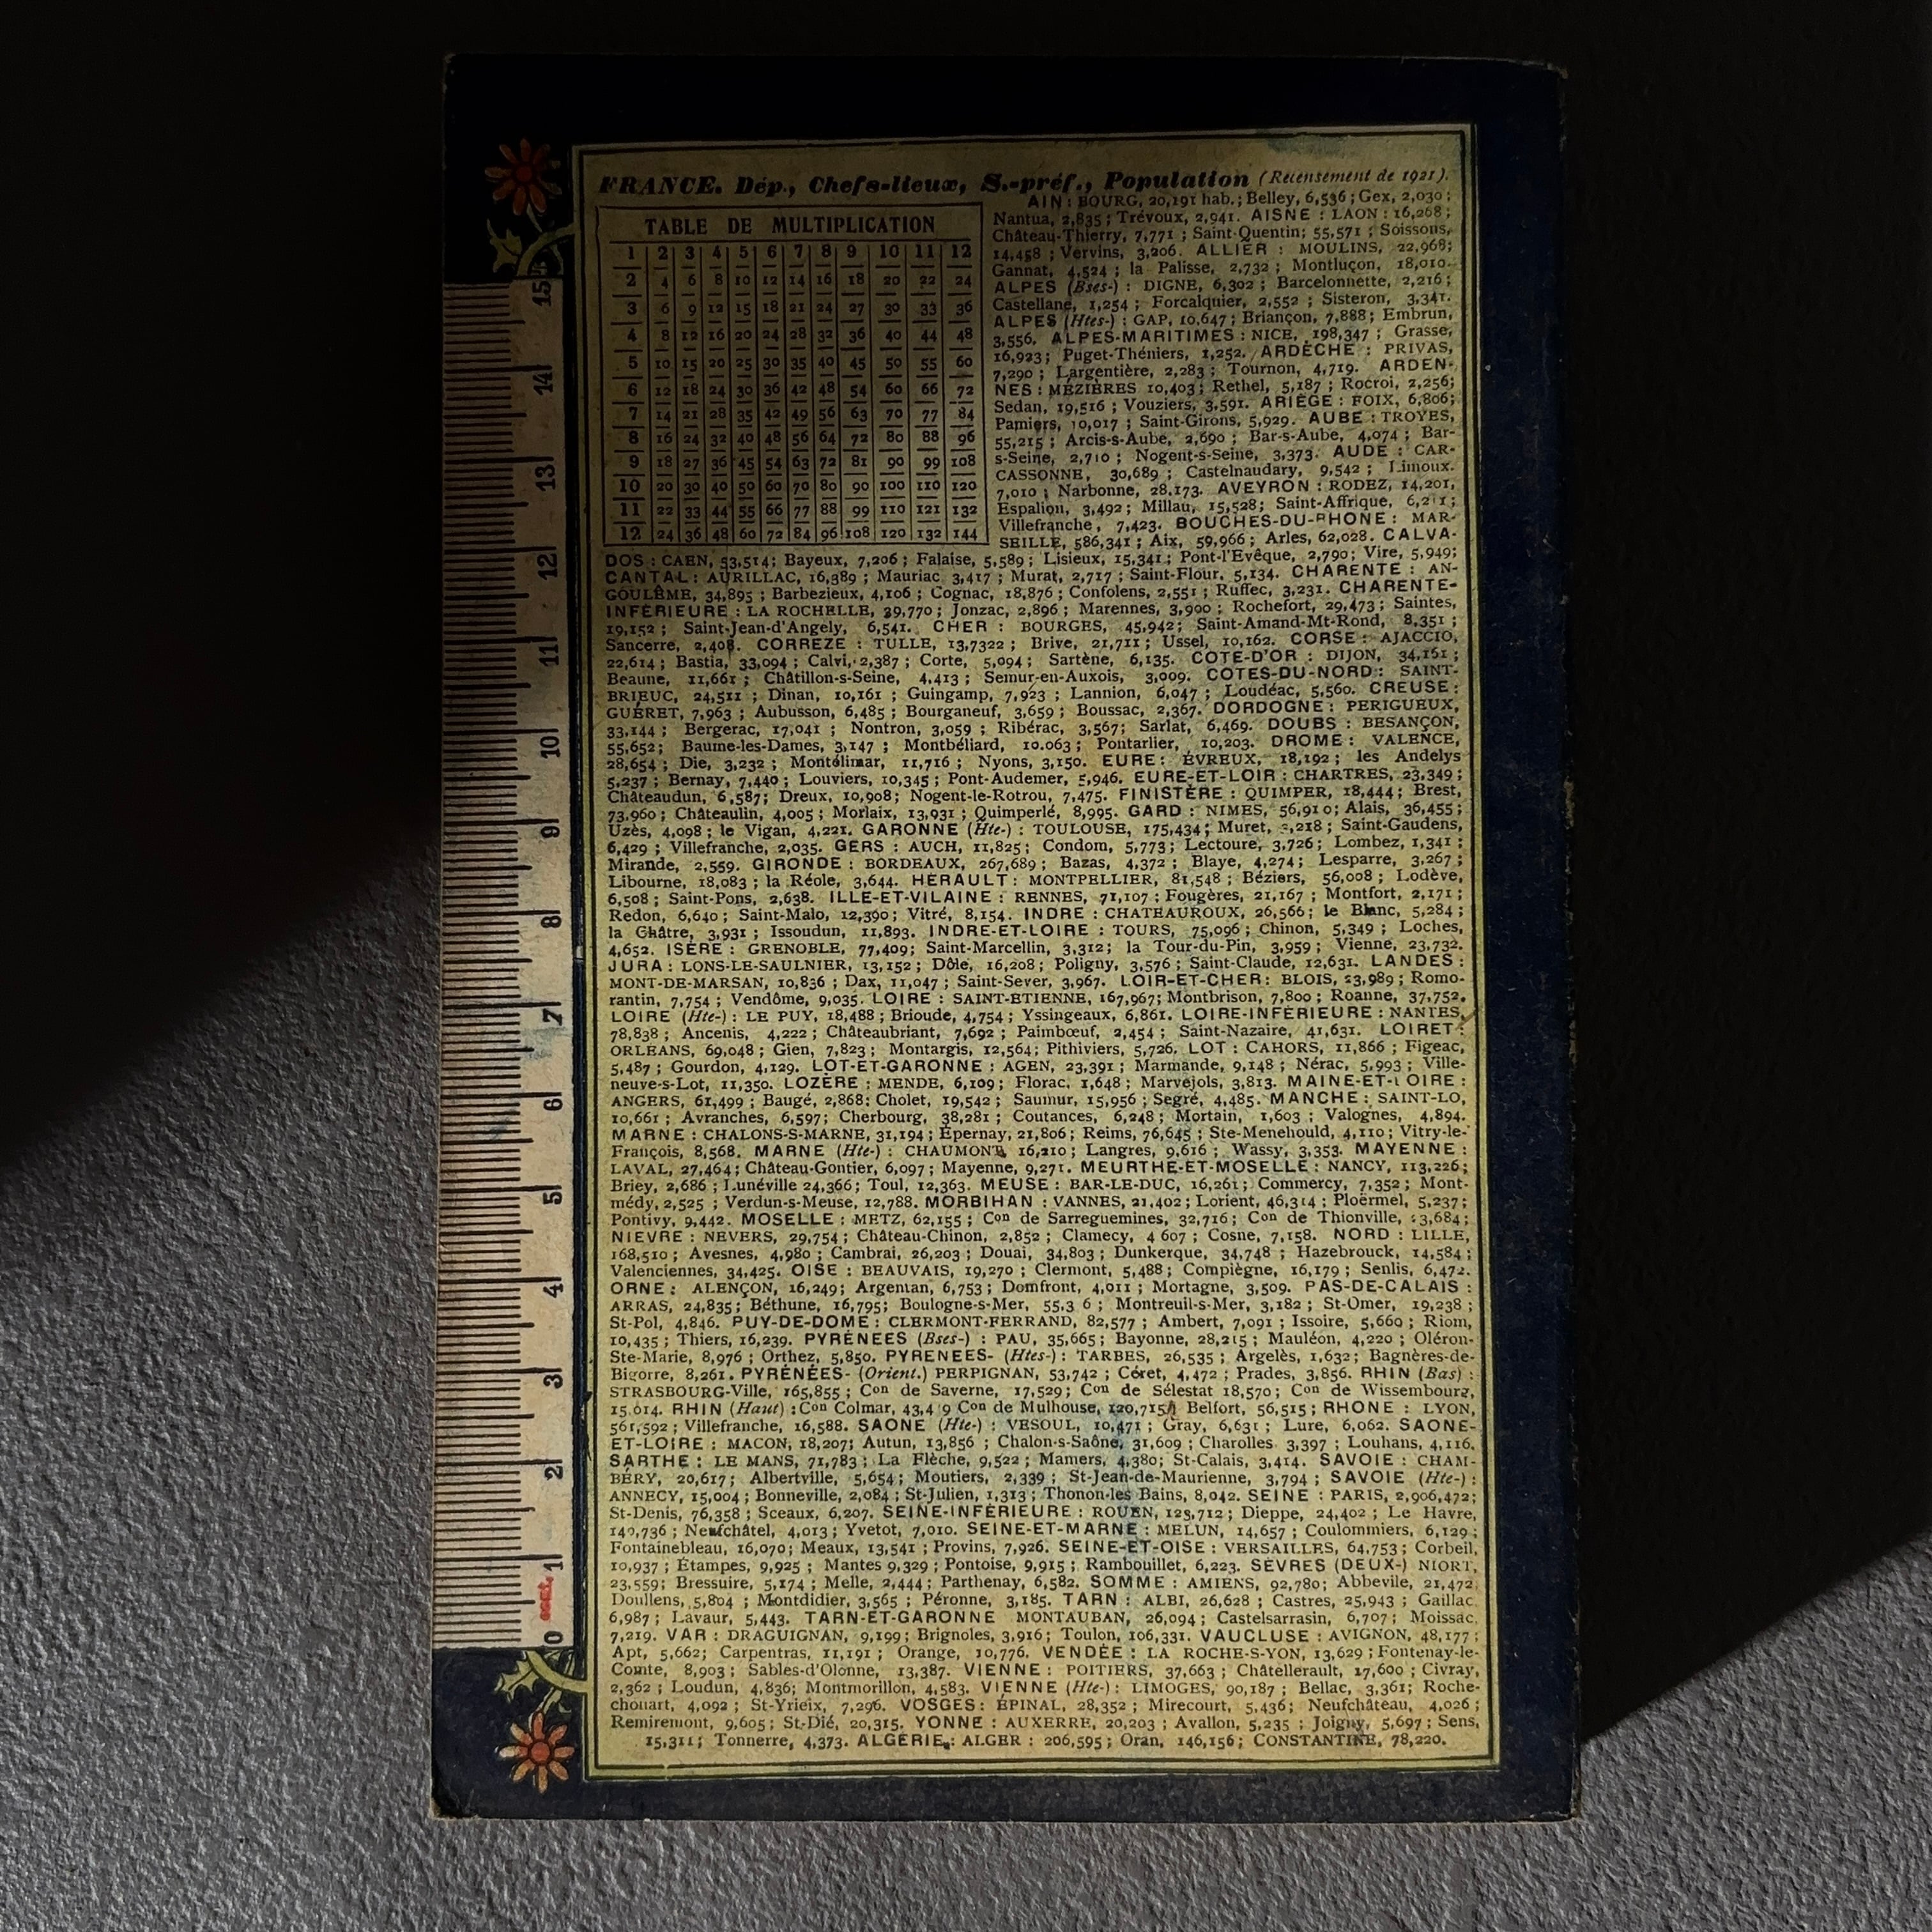 FRANCE. Dép., Chefs-lieux, S.-préf., Population (Recensement de 1921).
TABLE DE MULTIPLICATION
1 2 3 4 5 6 7 8 9 10 11 12
2 4 6 8 10 12 14 16 18 20 22 24
3 6 9 12 15 18 21 24 27 30 33 36
4 8 12 16 20 24 28 32 36 40 44 48
5 10 15 20 25 30 35 40 45 50 55 60
6 12 18 24 30 36 42 48 54 60 66 72
7 14 21 28 35 42 49 56 63 70 77 84
8 16 24 32 40 48 56 64 72 80 88 96
9 18 27 36 45 54 63 72 81 90 99 108
10 20 30 40 50 60 70 80 90 100 110 120
11 22 33 44 55 66 77 88 99 110 121 132
12 24 36 48 60 72 84 96 108 120 132 144
AIN : BOURG, 20,191 hab. ; Belley, 6,536 ; Gex, 2,030 ;
Nantua, 2,835 ; Trévoux, 2,941. AISNE : LAON : 16,268 ;
Château-Thierry, 7,771 ; Saint-Quentin; 55,571 ; Soissons,
14,458 ; Vervins, 3,206. ALLIER : MOULINS, 22,968;
Gannat, 4,524 ; la Palisse, 2,732 ; Montluçon, 18,010.
ALPES (Bses-) : DIGNE, 6,302 ; Barcelonnette, 2,216 ;
Castellane, 1,254 ; Forcalquier, 2,552 ; Sisteron, 3,341.
ALPES (Htes-) : GAP, 10,647 ; Briançon, 7,888 ; Embrun,
3,556. ALPES-MARITIMES : NICE, 198,347 ; Grasse,
16,923; Puget-Théniers, 1,252. ARDÈCHE : PRIVAS,
7,290 ; Largentière, 2,283 ; Tournon, 4,719. ARDEN-
NES : MÉZIÈRES 10,403; Rethel, 5,187 ; Rocroi, 2,256;
Sedan, 19,516 ; Vouziers, 3,591. ARIÈGE : FOIX, 6,806;
Pamiers, 10,017 ; Saint-Girons, 5,929. AUBE : TROYES,
55,215 ; Arcis-s-Aube, 2,690 ; Bar-s-Aube, 4,074 ; Bar-
s-Seine, 2,710 ; Nogent-s-Seine, 3,373. AUDE : CAR-
CASSONNE, 30,689 ; Castelnaudary, 9,542 ; Limoux.
7,010 ; Narbonne, 28.173. AVEYRON : RODEZ, 14,201,
Espalion, 3,492; Millau, 15,528; Saint-Affrique,
Villefranche, 7,423. BOUCHES-DU-RHONE : MAR-
SEILLE, 586,341 ; Aix, 59,966 ; Arles, 62,028. CALVA-
DOS : CAEN, 53,514; Bayeux, 7,206 ; Falaise, 5,589 ; Lisieux, 15,341 ; Pont-l'Evêque, 2,790; Vire, 5,949;
CANTAL : AURILLAC, 16,389 ; Mauriac 3,417 ; Murat, 2,717 ; Saint-Flour, 5,134. CHARENTE : AN-
GOULÊME, 34,895 ; Barbezieux, 4,106 ; Cognac, 18,876 ; Confolens, 2,551 ; Ruffec, 3,231. CHARENTE-
INFÉRIEURE : LA ROCHELLE, 39,770 ; Jonzac, 2,896 ; Marennes, 3,900 ; Rochefort, 29,473 ; Saintes,
19,152 ; Saint-Jean-d'Angely, 6,541. CHER : BOURGES, 45,942; Saint-Amand-Mt-Rond, 8,351 ;
Sancerre, 2,408. CORREZE : TULLE, 13,7322 ; Brive, 21,711 ; Ussel, 10,162. CORSE : AJACCIO,
22,614 ; Bastia, 33,094 ; Calvi, 2,387 ; Corte, 5,094 ; Sartène, 6,135. COTE-D'OR : DIJON, 34,151 ;
Beaune, 11,661 ; Châtillon-s-Seine, 4,413 ; Semur-en-Auxois, 3,009. COTES-DU-NORD : SAINT-
BRIEUC, 24,511 ; Dinan, 10,161 ; Guingamp, 7,923 ; Lannion, 6,047 ; Loudéac, 5,560. CREUSE :
GUÉRET, 7,963 ; Aubusson, 6,485 ; Bourganeuf, 3,659 ; Boussac, 2,367. DORDOGNE : PERIGUEUX,
33,144 ; Bergerac, 17,041 ; Nontron, 3,059 ; Ribérac, 3,567; Sarlat, 6,469. DOUBS : BESANÇON,
55,652; Baume-les-Dames, 3,147 ; Montbéliard, 10.063 ; Pontarlier, 10,203. DROME : VALENCE,
28,654 ; Die, 3,232 ; Montélimar, 11,716 ; Nyons, 3,150. EURE : ÉVREUX, 18,192 ; les Andelys
5,237 ; Bernay, 7,440 ; Louviers, 10,345 ; Pont-Audemer, 5,946. EURE-ET-LOIR : CHARTRES, 23,349 ;
Châteaudun, 6,587; Dreux, 10,908; Nogent-le-Rotrou, 7,475. FINISTÈRE : QUIMPER, 18,444 ; Brest,
73,960 ; Châteaulin, 4,005 ; Morlaix, 13,931 ; Quimperlé, 8,995. GARD : NIMES, 56,910; Alais, 36,455 ;
Uzès, 4,098 ; le Vigan, 4,221. GARONNE (Hte-) : TOULOUSE, 175,434 ; Muret, ,218 ; Saint-Gaudens,
6,429 ; Villefranche, 2,035. GERS : AUCH, 11,825; Condom, 5,773 ; Lectoure, 3,726 ; Lombez, 1,341 ;
Mirande, 2,559. GIRONDE : BORDEAUX, 267,689; Bazas, 4,372 ; Blaye, 4,274 ; Lesparre, 3,267 ;
Libourne, 18,083 ; la Réole, 3,644. HÉRAULT : MONTPELLIER, 81,548 ; Béziers, 56,008 ; Lodève,
6,508 ; Saint-Pons, 2,638. ILLE-ET-VILAINE : RENNES, 71,107 ; Fougères, 21,167 ; Montfort, 2,171 ;
Redon, 6,640 ; Saint-Malo, 12,390; Vitré, 8,154. INDRE : CHATEAUROUX, 26,566; le Blanc, 5,284 ;
la Châtre, 3,931 ; Issoudun, 11,893. INDRE-ET-LOIRE : TOURS, 75,096 ; Chinon, 5,349 ; Loches,
4,652. ISÈRE : GRENOBLE, 77,409; Saint-Marcellin, 3,312; la Tour-du-Pin, 3,959 ; Vienne, 23,732.
JURA : LONS-LE-SAULNIER, 13,152 ; Dôle, 16,208 ; Poligny, 3,576 ; Saint-Claude, 12,631. LANDES :
MONT-DE-MARSAN, 10,836 ; Dax, 11,047 ; Saint-Sever, 3,967. LOIR-ET-CHER : BLOIS, 23,989 ; Romo-
rantin, 7,754 ; Vendôme, 9,035. LOIRE : SAINT-ETIENNE, 167,967; Montbrison, 7,800 ; Roanne, 37,752.
LOIRE (Hte-) : LE PUY, 18,488 ; Brioude, 4,754 ; Yssingeaux, 6,861. LOIRE-INFÉRIEURE : NANTES,
78,838 ; Ancenis, 4,222 ; Châteaubriant, 7,692 ; Paimbœuf, 2,454 ; Saint-Nazaire, 41,631. LOIRET :
ORLEANS, 69,048 ; Gien, 7,823 ; Montargis, 12,564; Pithiviers, 5,726. LOT : CAHORS, 11,866 ; Figeac,
5,487 ; Gourdon, 4,129. LOT-ET-GARONNE : AGEN, 23,391 ; Marmande, 9,148 ; Nérac, 5,993 ; Ville-
neuve-s-Lot, 11,350. LOZÈRE : MENDE, 6,109 ; Florac, 1,648 ; Marvejols, 3,813. MAINE-ET-LOIRE :
ANGERS, 61,499 ; Baugé, 2,868; Cholet, 19,542 ; Saumur, 15,956 ; Segré, 4,485. MANCHE : SAINT-LO,
10,661 ; Avranches, 6,597; Cherbourg, 38,281 ; Coutances, 6,248 ; Mortain, 1,603 ; Valognes, 4,894.
MARNE : CHALONS-S-MARNE, 31,194 ; Épernay, 21,806 ; Reims, 76,645 ; Ste-Menehould, 4,110 ; Vitry-le-
François, 8,568. MARNE (Hte-) : CHAUMONT, 16,210 ; Langres, 9,616 ; Wassy, 3,353. MAYENNE :
LAVAL, 27,464 ; Château-Gontier, 6,097 ; Mayenne, 9,271. MEURTHE-ET-MOSELLE : NANCY, 113,226;
Briey, 2,686 ; Lunéville 24,366; Toul, 12,363. MEUSE : BAR-LE-DUC, 16,261 ; Commercy, 7,352 ; Mont-
médy, 2,525 ; Verdun-s-Meuse, 12,788. MORBIHAN : VANNES, 21,402 ; Lorient, 46,314 ; Ploërmel, 5,237 ;
Pontivy, 9,442. MOSELLE : METZ, 62,155 ; Con de Sarreguemines, 32,716; Con de Thionville, 3,684 ;
NIEVRE : NEVERS, 29,754 ; Château-Chinon, 2,852 ; Clamecy, 4 607 ; Cosne, 7,158. NORD : LILLE,
168,510 ; Avesnes, 4,980 ; Cambrai, 26,203 ; Douai, 34,803 ; Dunkerque, 34,748 ; Hazebrouck, 14,584 ;
Valenciennes, 34,425. OISE : BEAUVAIS, 19,270 ; Clermont, 5,488 ; Compiègne, 16,179 ; Senlis, 6,472.
ORNE : ALENÇON, 16,249 ; Argentan, 6,753 ; Domfront, 4,011 ; Mortagne, 3,509. PAS-DE-CALAIS :
ARRAS, 24,835 ; Béthune, 16,795; Boulogne-s-Mer, 55,3 6 ; Montreuil-s-Mer, 3,182 ; St-Omer, 19,238 ;
St-Pol, 4,846. PUY-DE-DOME : CLERMONT-FERRAND, 82,577 ; Ambert, 7,091 ; Issoire, 5,660 ; Riom,
10,435 ; Thiers, 16,239. PYRÉNÉES (Bses-) : PAU, 35,665 ; Bayonne, 28,215 ; Mauléon, 4,220 ; Oléron-
Ste-Marie, 8,976 ; Orthez, 5,850. PYRENEES- (Htes-) : TARBES, 26,535 ; Argelès, 1,632; Bagnères-de-
Bigorre, 8,261. PYRÉNÉES- (Orient.) PERPIGNAN, 53,742 ; Céret, 4,472 ; Prades, 3,856. RHIN (Bas) :
STRASBOURG-Ville, 165,855 ; Con de Saverne, 17,529 ; Con de Sélestat 18,570 ; Con de Wissembourg,
15,614. RHIN (Haut) : Con Colmar, 43,4 9 Con de Mulhouse, 120,715 Belfort, 56,515 ; RHONE : LYON,
561,592 ; Villefranche, 16,588. SAONE (Hte-) : VESOUL, 10,471 ; Gray, 6,631 ; Lure, 6,062. SAONE-
ET-LOIRE : MACON, 18,207; Autun, 13,856 ; Chalon-s-Saône, 31,609 ; Charolles 3,397 ; Louhans, 4,116.
SARTHE : LE MANS, 71,783 ; La Flèche, 9,522 ; Mamers, 4,380; St-Calais, 3,414. SAVOIE : CHAM-
BÉRY, 20,617; Albertville, 5,654 ; Moutiers, 2,339 ; St-Jean-de-Maurienne, 3,794 ; SAVOIE (Hte-) :
ANNECY, 15,004 ; Bonneville, 2,084 ; St-Julien, 1,313 ; Thonon-les Bains, 8,042. SEINE : PARIS, 2,906,472;
St-Denis, 76,358 ; Sceaux, 6,207. SEINE-INFÉRIEURE : ROUEN, 123,712 ; Dieppe, 24,402 ; Le Havre,
140,736 ; Neufchâtel, 4,013 ; Yvetot, 7,010. SEINE-ET-MARNE : MELUN, 14,657 ; Coulommiers, 6,129 ;
Fontainebleau, 16,070; Meaux, 13,541 ; Provins, 7,926. SEINE-ET-OISE : VERSAILLES, 64,753 ; Corbeil,
10,937 ; Étampes, 9,925 ; Mantes 9,329 ; Pontoise, 9,915 ; Rambouillet, 6,223. SÈVRES (DEUX-) NIORT,
23,559; Bressuire, 5,174 ; Melle, 2,444 ; Parthenay, 6,582. SOMME : AMIENS, 92,780; Abbevile, 21,472
Doullens, 5,804 ; Montdidier, 3,565 ; Péronne, 3,185. TARN : ALBI, 26,628 ; Castres, 25,943 ; Gaillac
6,987 ; Lavaur, 5,443. TARN-ET-GARONNE MONTAUBAN, 26,094 ; Castelsarrasin, 6,707 ; Moissac,
7,219. VAR : DRAGUIGNAN, 9,199 ; Brignoles, 3,916; Toulon, 106,331. VAUCLUSE : AVIGNON, 48,177 ;
Apt, 5,662; Carpentras, 11,191 ; Orange, 10,776. VENDÉE : LA ROCHE-S-YON, 13,629 ; Fontenay-le-
Comte, 8,903 ; Sables-d'Olonne, 13,387. VIENNE : POITIERS, 37,663 ; Châtellerault, 17,600 ; Civray,
2,362 ; Loudun, 4,836; Montmorillon, 4,583. VIENNE (Hte-) : LIMOGES, 90,187 ; Bellac, 3,361; Roche-
chouart, 4,092 ; St-Yrieix, 7,296. VOSGES : ÉPINAL, 28,352 ; Mirecourt, 5,436; Neufchâteau, 4,026 ;
Remiremont, 9,605 ; St-Dié, 20,315. YONNE : AUXERRE, 20,203 ; Avallon, 5,235 ; Joigny, 5,697 ; Sens,
15,311; Tonnerre, 4,373. ALGÉRIE : ALGER : 206,595 ; Oran, 146,156 ; CONSTANTINE, 78,220.
15
14
13
12
11
10
9
8
7
6
5
4
3
2
1
cent.
0